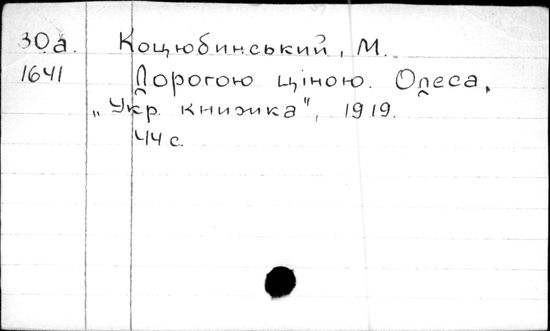 30а. Коцюбинський, М.
1641 Дорогою ціною. Одеса,
„Укр. книжка", 1919.
44 с.